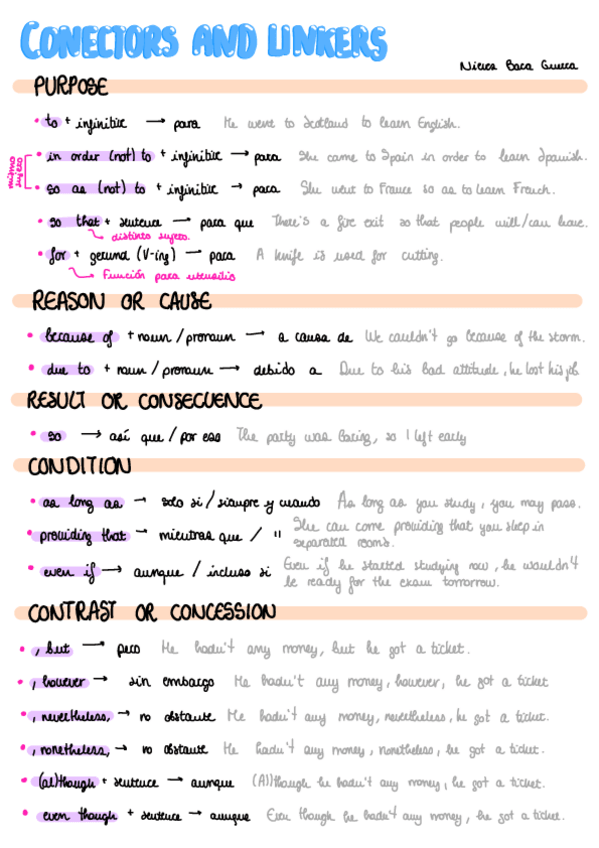 CONECTORS AND LINKERS
Nierea Baca Guerra
PURPOSE
• to + infinitive → para He went to Scotland to learn English.
mismo sujeto
• in order (not) to + infinitive → para She came to Spain in order to learn Spanish.
• so as (not) to + infinitive → para She went to France so as to learn French.
• so that + sentence → para que There's a fire exit so that people will/can leave.
↳ distinto sujeto.
• for + gerund (V-ing) → para A knife is used for cutting.
↳ Función para utensilis
REASON OR CAUSE
• because of + noun / pronoun → a causa de We couldn't go because of the storm.
• due to + noun / pronoun → debido a Due to his bad attitude, he lost his job
RESULT OR CONSECUENCE
• so → así que / por eso The party was boring, so I left early
CONDITION
• as long as → solo si / siempre y cuando As long as you study, you may pass.
• providing that → mientras que / " She can come providing that you sleep in
separated rooms.
• even if → aunque / incluso si Even if he started studying now, he wouldn't
be ready for the exam tomorrow.
CONTRAST OR CONCESSION
• , but → pero He hadn't any money, but he got a ticket.
• , however → sin embargo He hadn't any money, however, he got a ticket
• , nevertheless, → no obstante He hadn't any money, nevertheless, he got a ticket.
• , nonetheless, → no obstante He hadn't any money, nonetheless, he got a ticket.
• (al)though + sentence → aunque (Al)though he hadn't any money, he got a ticket.
• even though + sentence → aunque Even though he hadn't any money, he got a ticket.